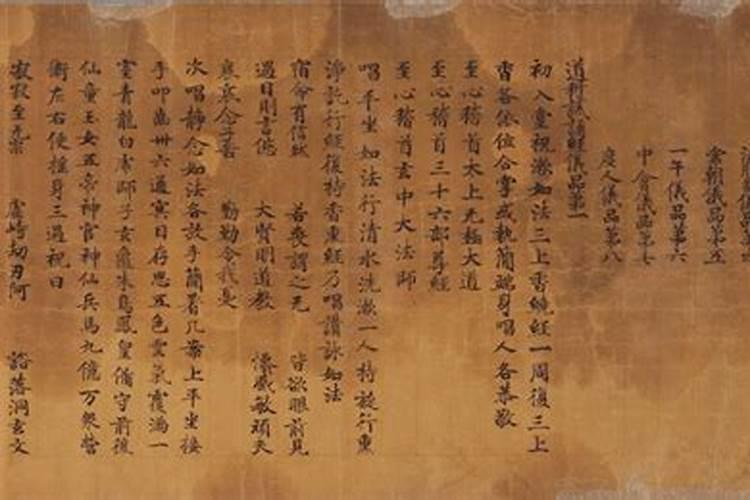 朝儀品第五
一午儀品第六
中會儀品第七
度人儀品第八
道科誡誦經儀品第一
初入堂視漱如法三上香繞經一周復三上
香各依位合掌或執簡端身唱人各恭敬
至心稽首太上无極大道
至心稽首三十六部尊經
至心稽首玄中大法師
唱平坐 如法行清水洗漱一人持袚行熏
淨訖行經復持香熏經乃唱讚詠如法
宿命有信然 若喪謂之无 皆欲眼前見
過目則言 大賢明道教 慜敏頑夫
哀哀念子善 勤勤令我憂
次唱靜念如法各放手簡著几案上平坐接
手叩齒卅六通冥目存思五色雲氣覆滿一
室青龍白虎師子玄龜朱鳥鳳皇備守前後
仙童玉女五帝神官神仙兵馬九億万衆營
衛左右便撞身三過祝曰
寂寂至无宗 虛峙劫刃阿 谽落洞玄文